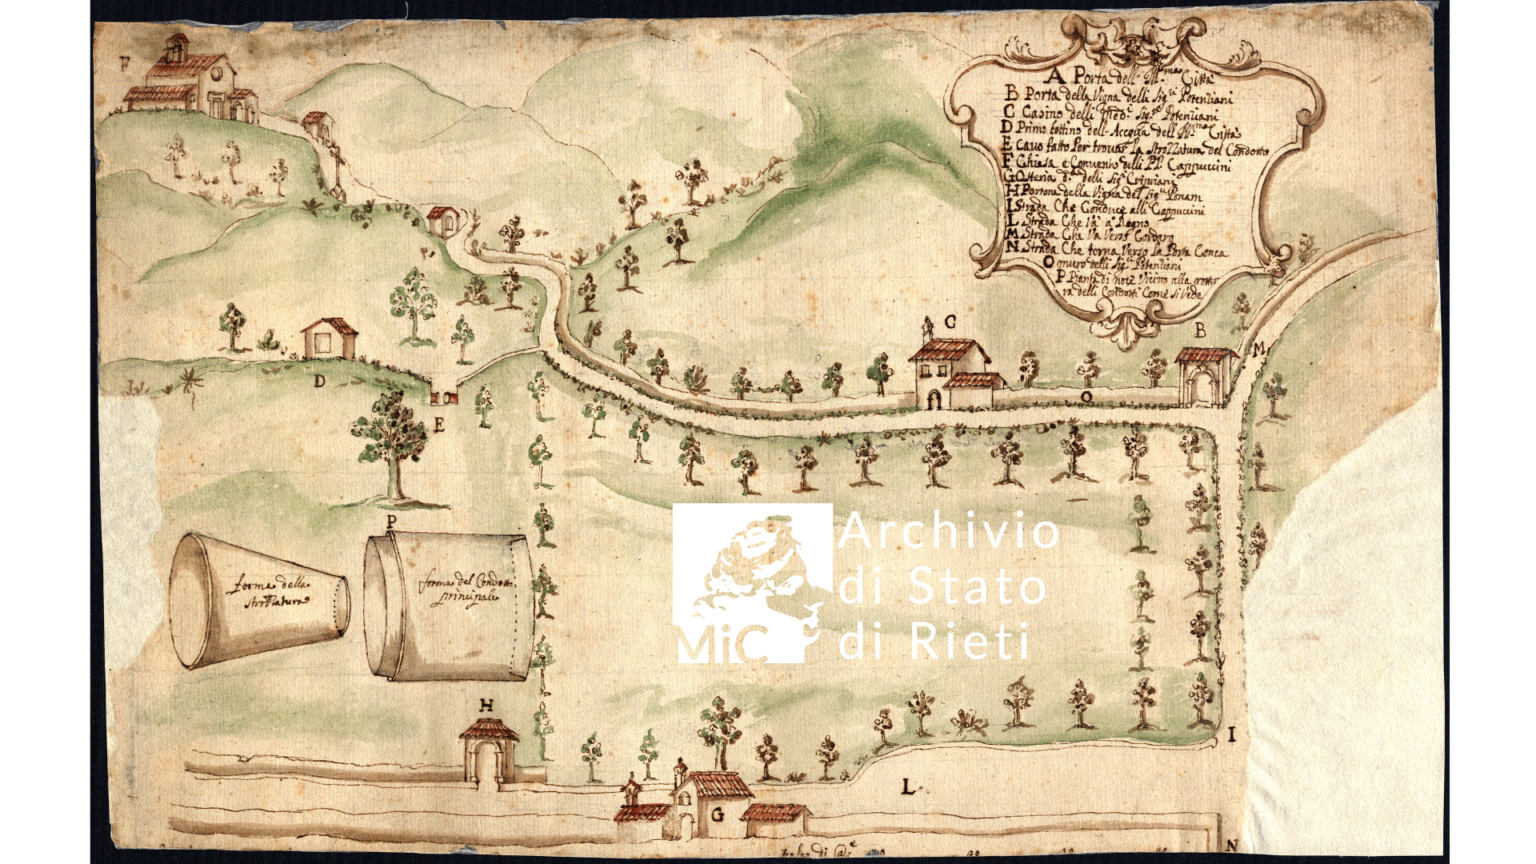 A Porta dell' Ill.ma Città
B Porta della Vigna delli Sig.ri Potenziani
C Casino delli Sig.ri Potenziani
D Primo bottino dell'Acqua dell' Ill.ma Città
E cavo fatto per trovar la Strozzatura del Condotto
F Chiesa e Convento delli PP. Cappuccini
G Osteria delli Sig.ri Cipriani
H Portone della Vigna del Sig.
I Strada Che Conduce alli Cappuccini
L Strada Che Va a Regno
M Strada Che Va Verso
N Strada Che torna Verso la Porta Conca
O muro delli Sig.ri Potenziani
P Pianta di noce Vicino alla
ra delli Condotti Come si Vede
F
C
B
M
D
O
E
P
forma della
strozzatura
forma del Condotto
principale
Archivio
di Stato
di Rieti
MiC
H
I
L
G
N